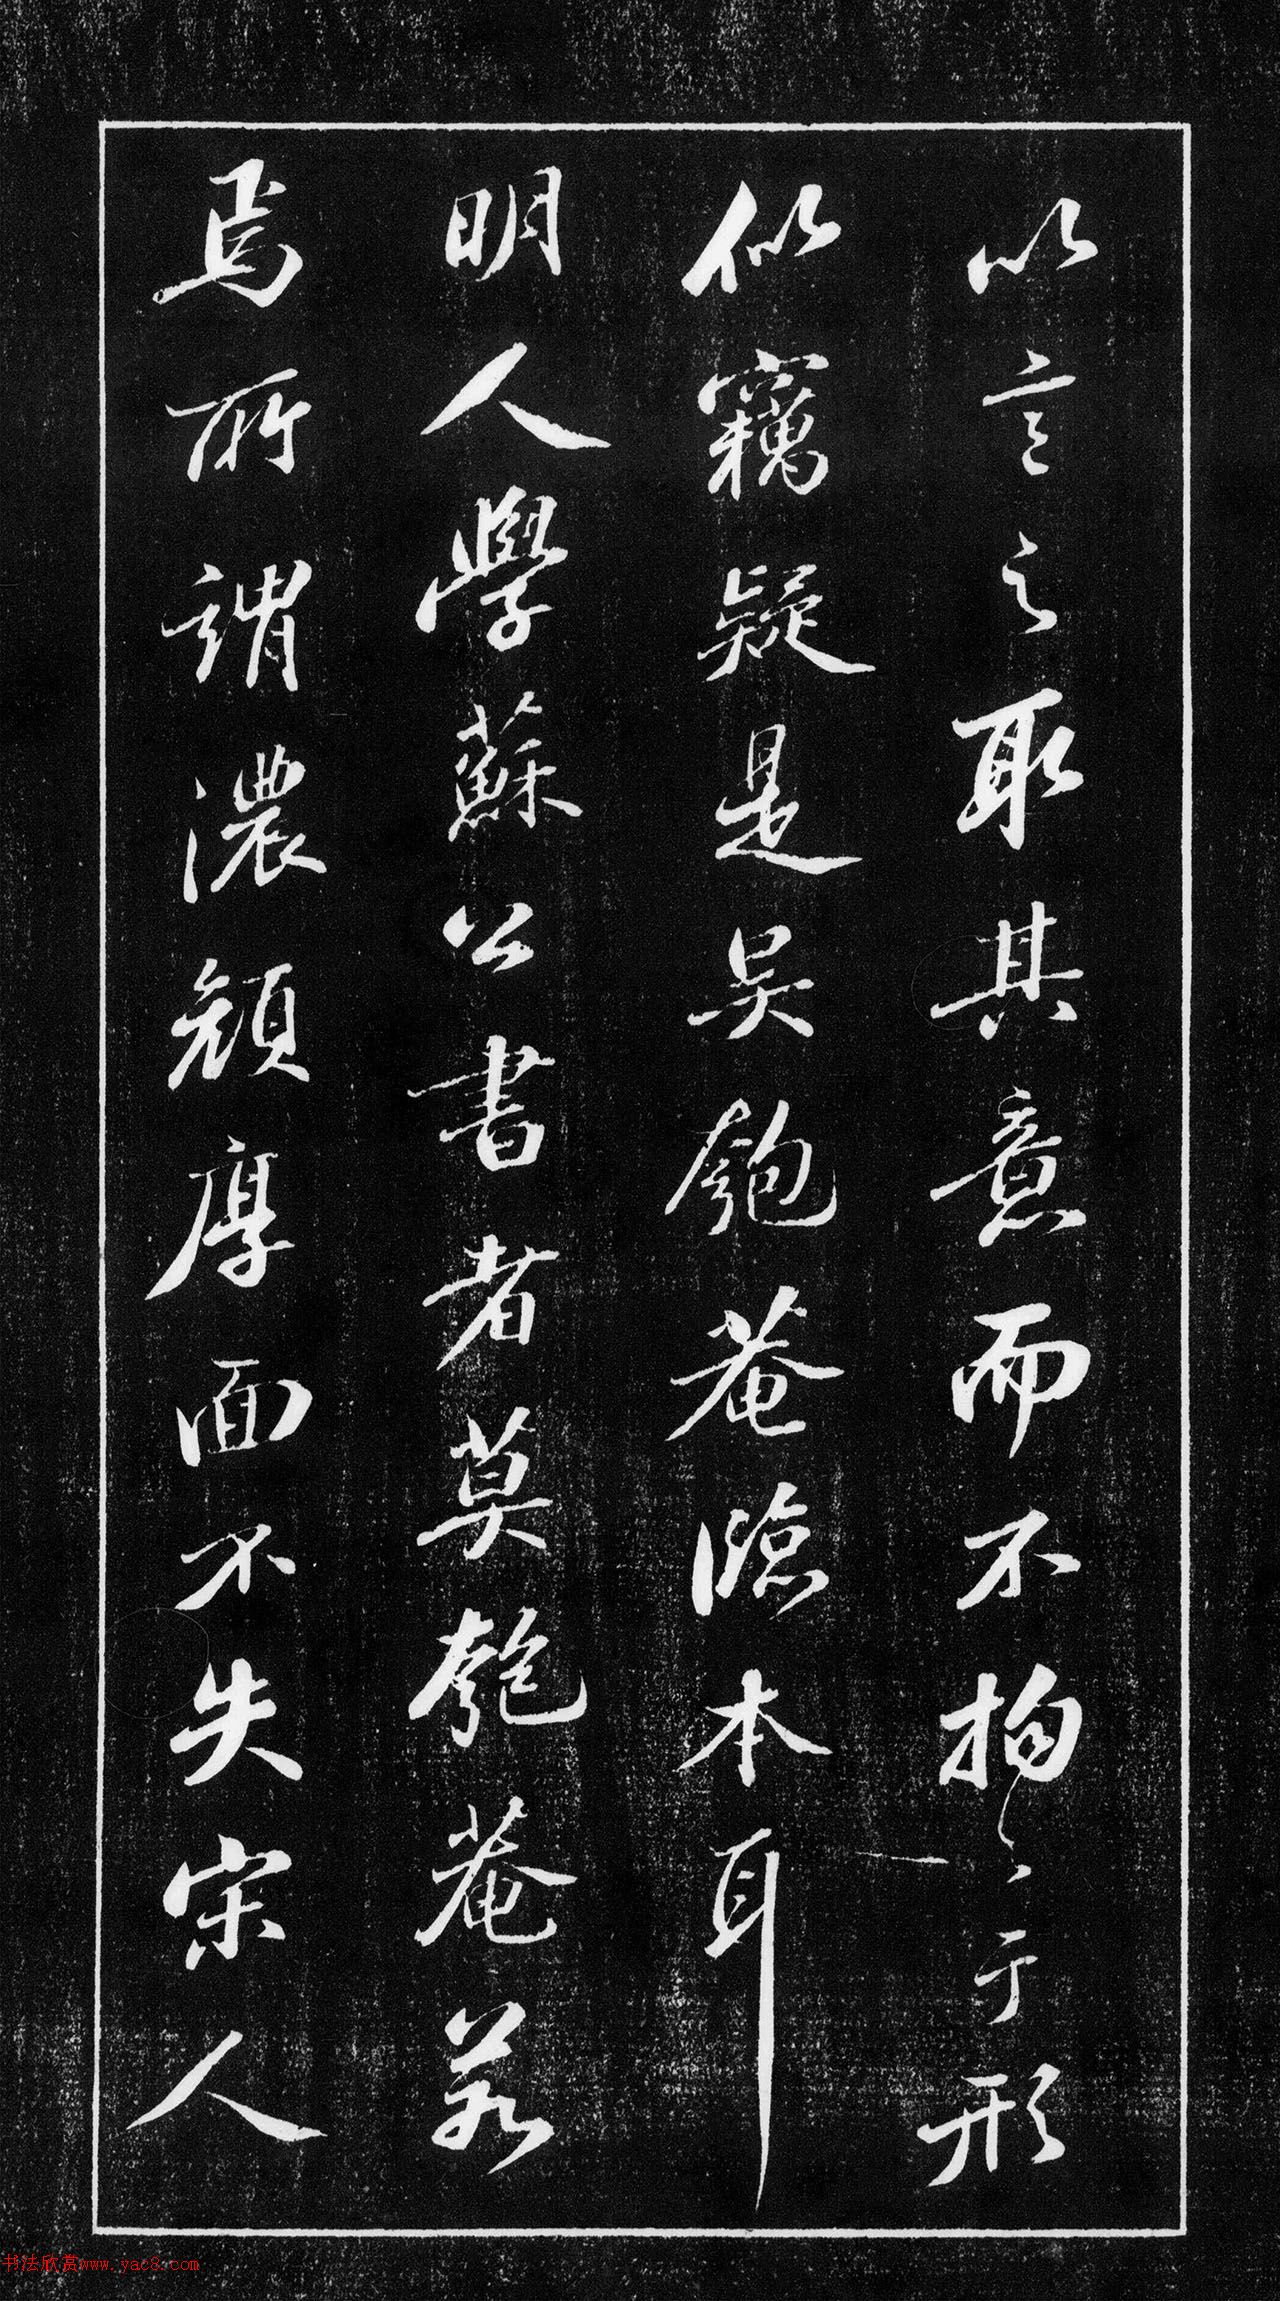 以言之取其意而不拘拘于形
似竊疑是吴匏菴臨本耳
明人學蘇公書者莫匏菴若
焉所謂濃顏厚面不失宋人
书法欣赏www.yac8.com